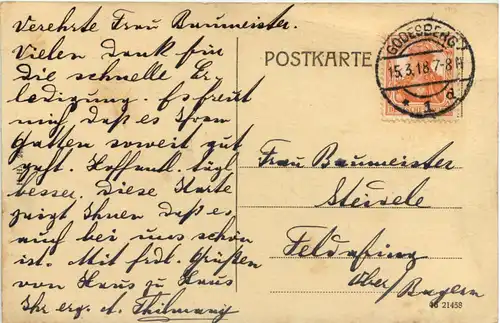 Verehrte Frau Baumeister.
Vielen Dank für
die schnelle Er-
ledigung. Es freut
mich, daß es Ihrem
Gatten soweit gut
geht. Hoffentl. tägl.
besser. Diese Karte
zeigt Ihnen daß es
auch bei uns schön
ist. Mit frdl. Grüßen
von Haus zu Haus
Ihr erg.
POSTKARTE
GODESBERG
15.3.18.7-8
* 1 d
Frau Baumeister
Steidele
Feldafing
Ober/
Bayern
46 21458